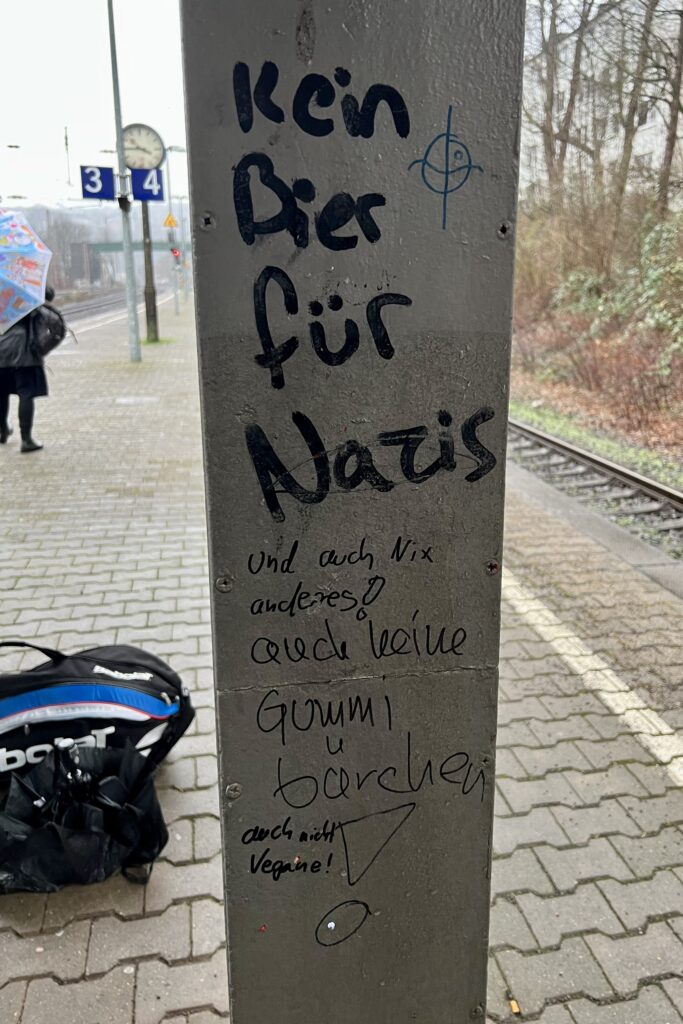 3 4
Kein
Bier
für
Nazis
und auch Nix
anderes!
auch keine
Gummi
bärchen
auch nicht
Vegane!
babolat
babolat